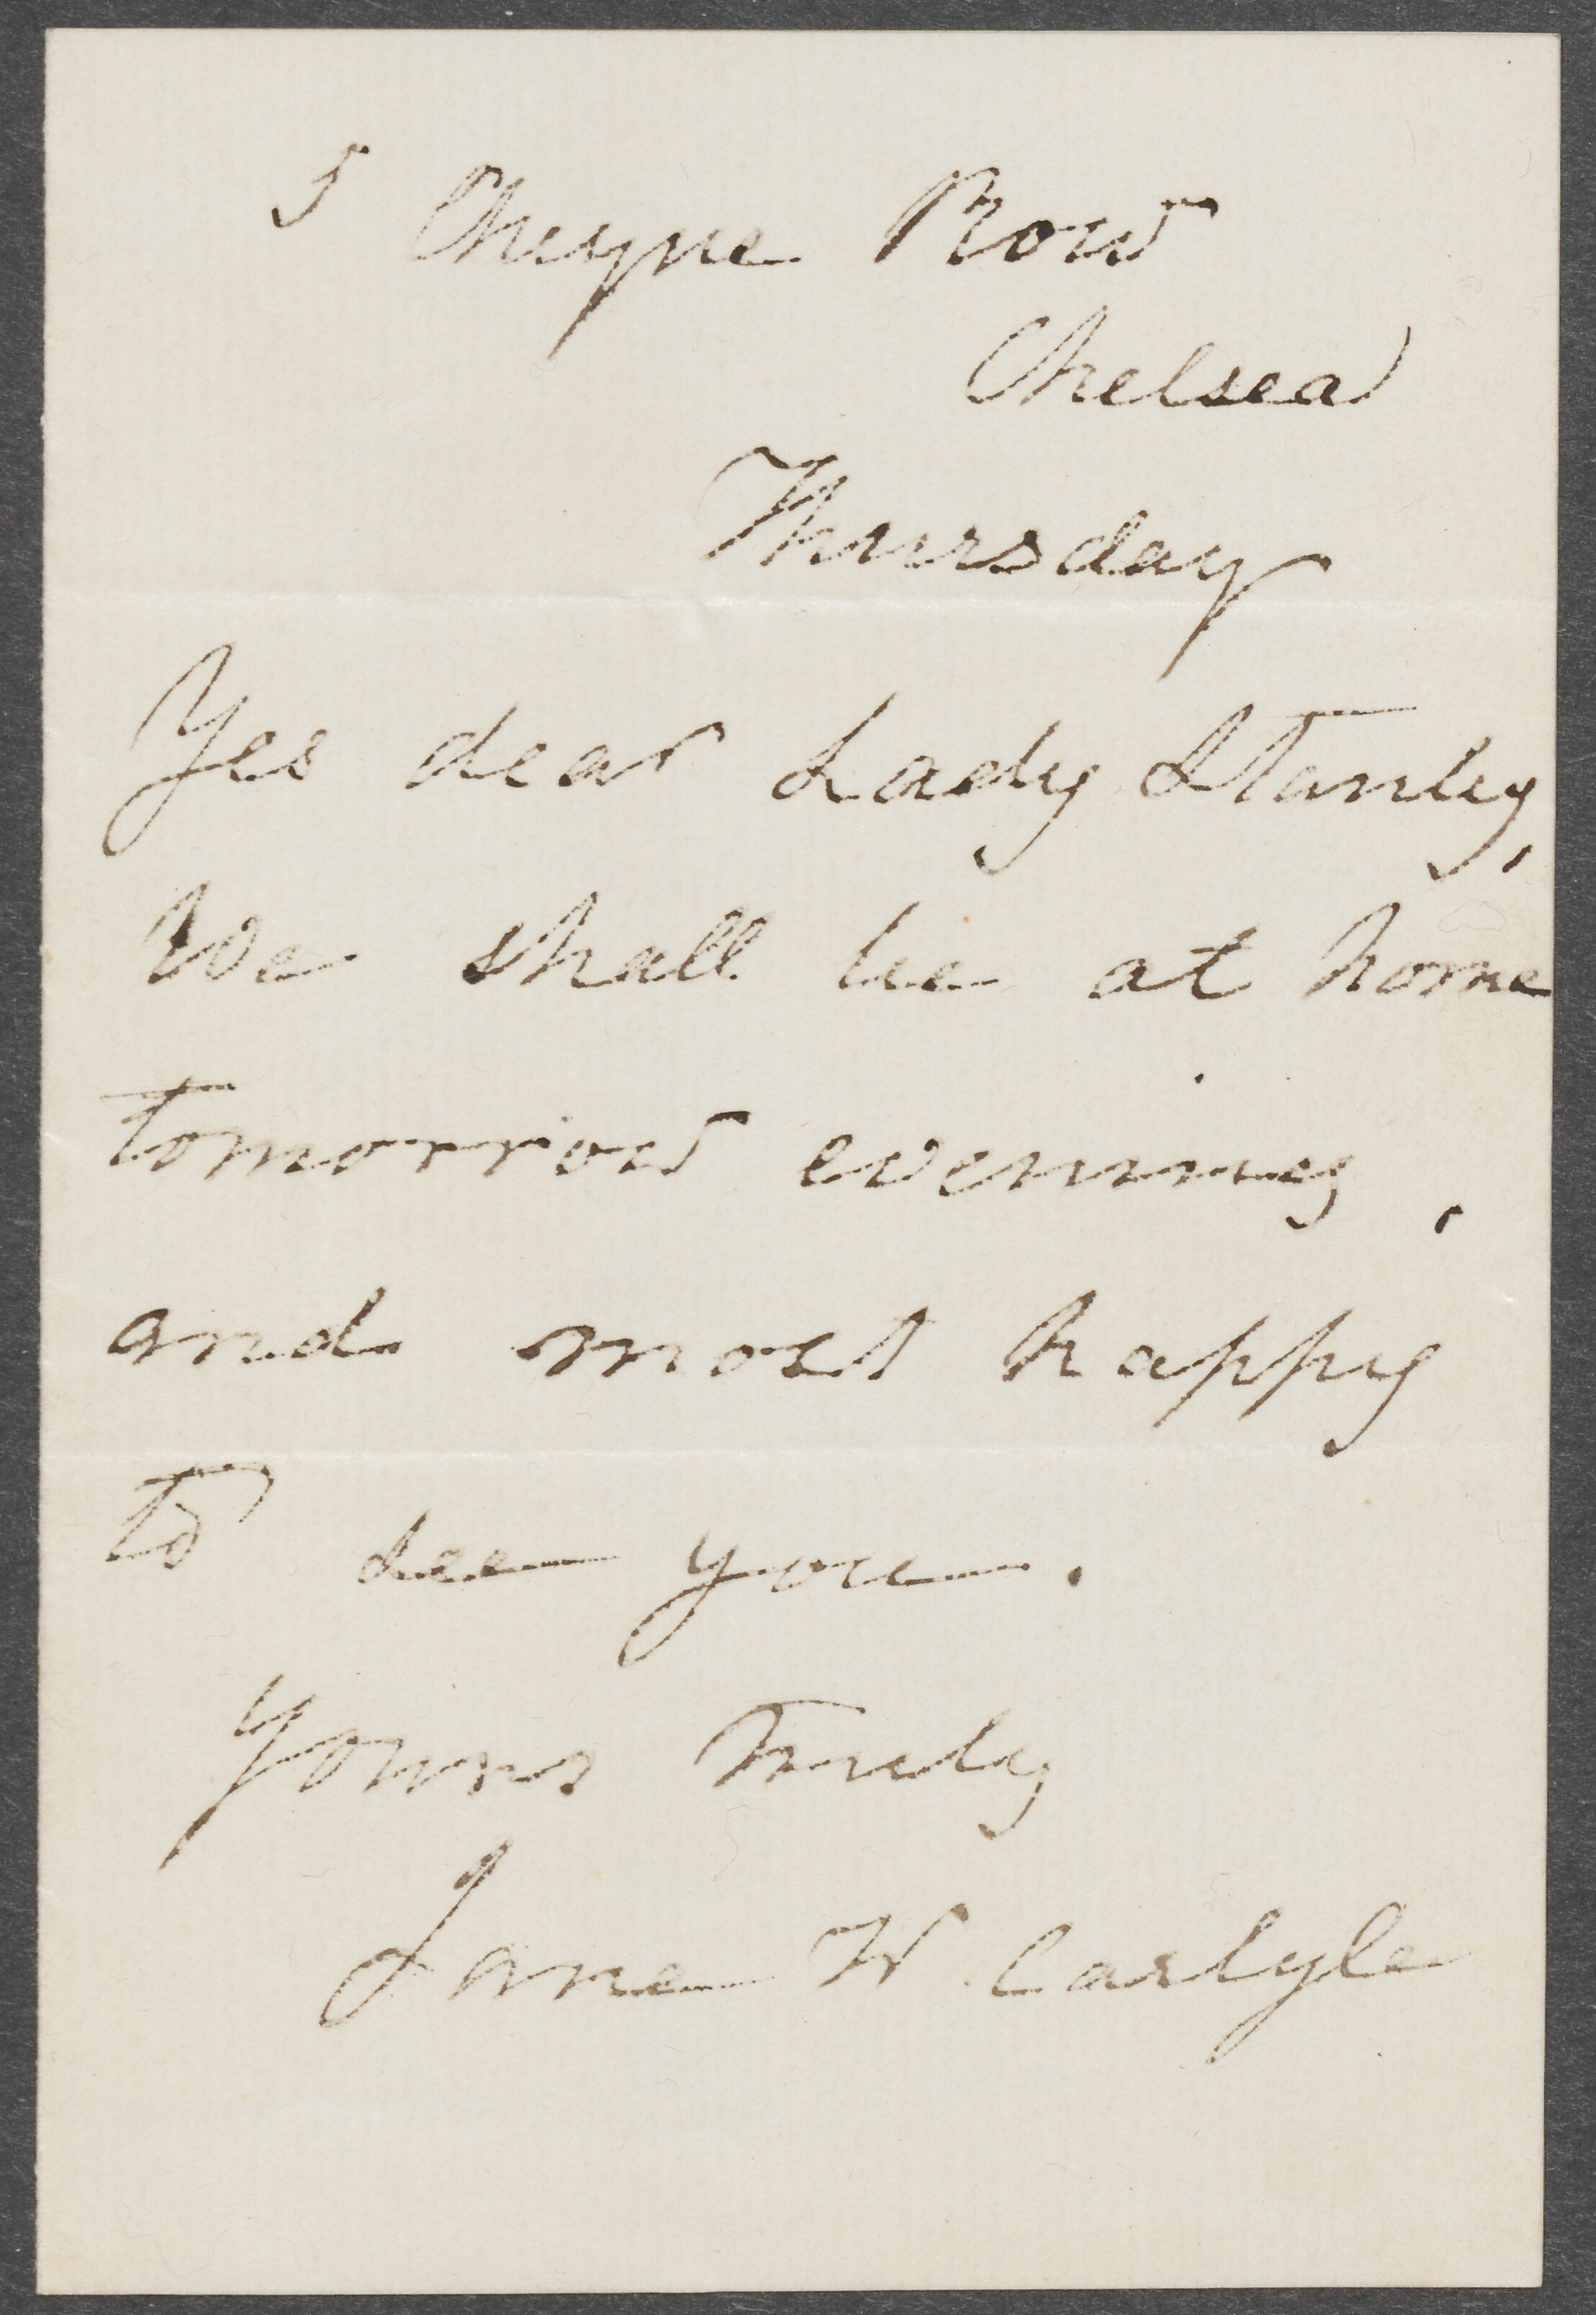 5 Cheyne Row
Chelsea
Thursday
Yes dear Lady Stanley,
We shall be at home
tomorrow evening,
and most happy
to see you.
Yours truly
Jane W Carlyle